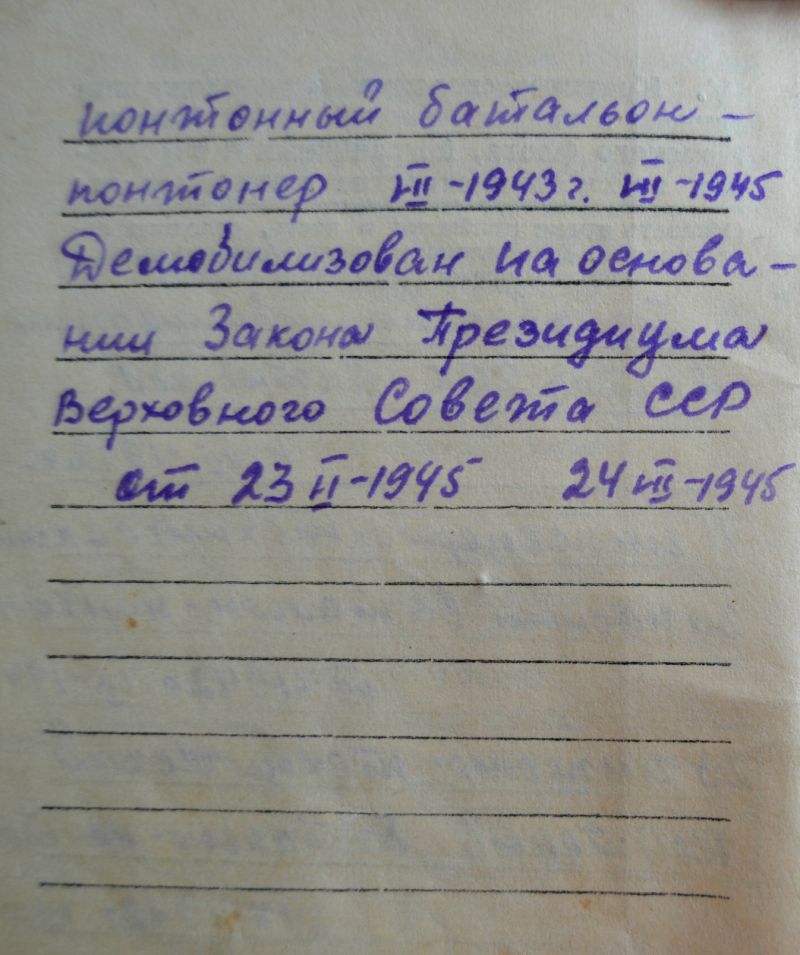 понтонный батальон –
понтонер VIII -1943 г. VIII -1945
Демобилизован на основа –
нии Закона Президиума
Верховного Совета ССР
от 23 II -1945 24 VIII -1945